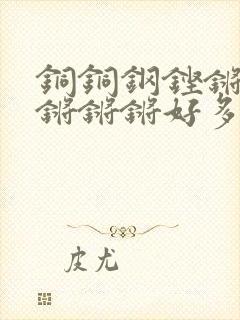 銅銅鋼鏗鏘
鏘鏘鏘好多
皮尤